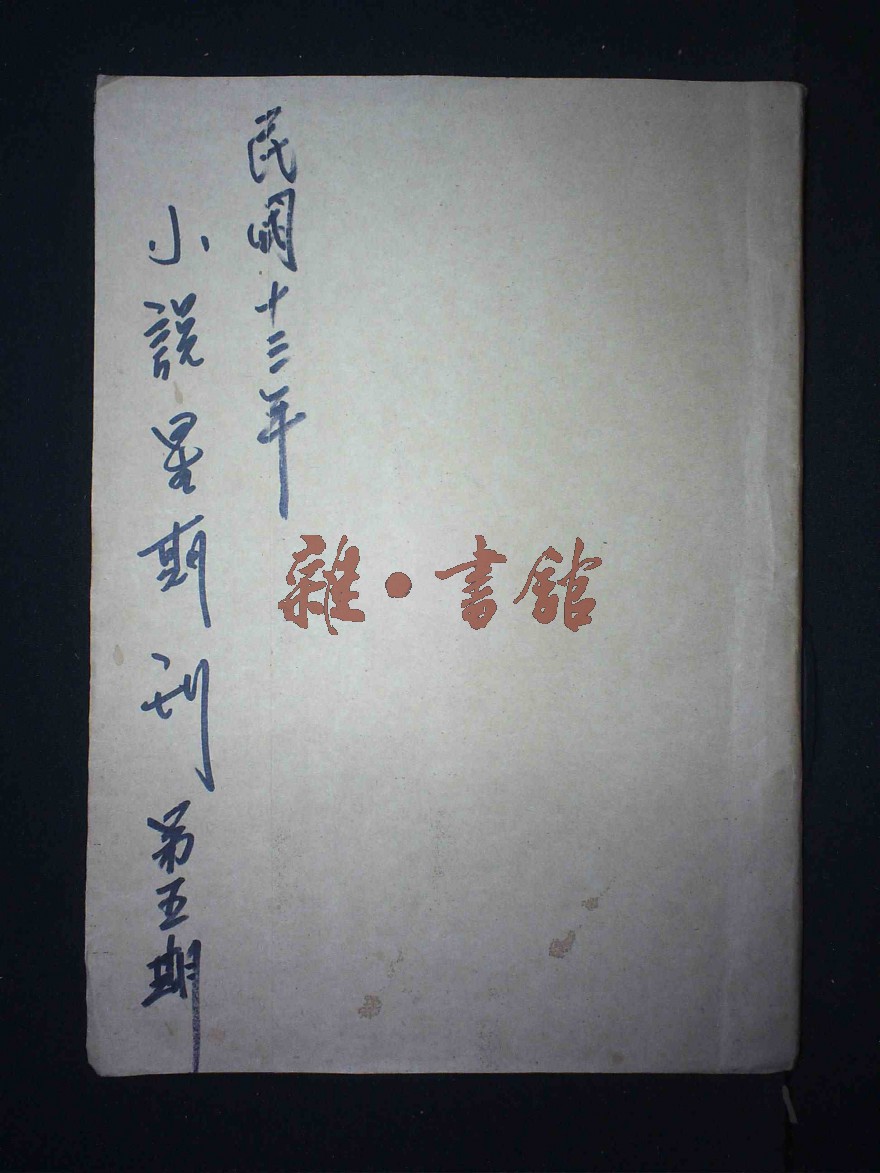 民國十三年
小說星期刊 第五期
雜·書館